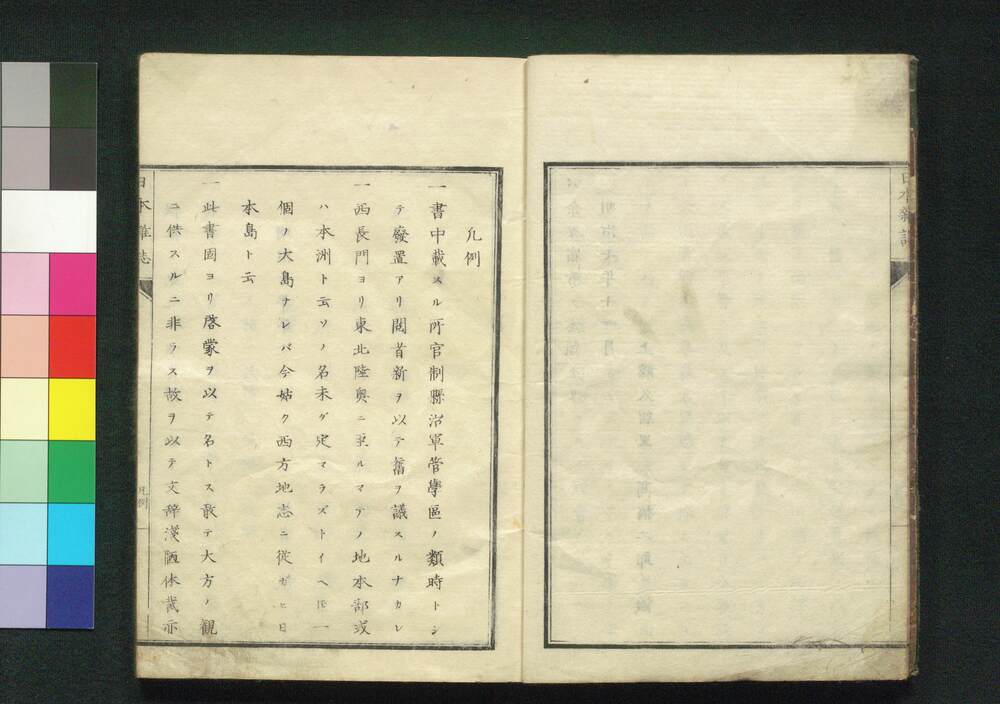 凡例
一書中載スル所官制縣治軍管學區ノ類時トシ
テ廢置アリ閲者新ヲ以テ舊ヲ議スルナカレ
一西長門ヨリ東北陸奧ニ至ルマデノ地本部或
ハ本洲ト云ソノ名未ダ定マラズトイヘ𪜈一
個ノ大島ナレバ今姑ク西方地志ニ從ガヒ日
本島ト云
一此書固ヨリ啓蒙ヲ以テ名トス敢テ大方ノ觀
ニ供スルニ非ラス故ヲ以テ文辞淺陋体裁亦
日本雜志
凡例